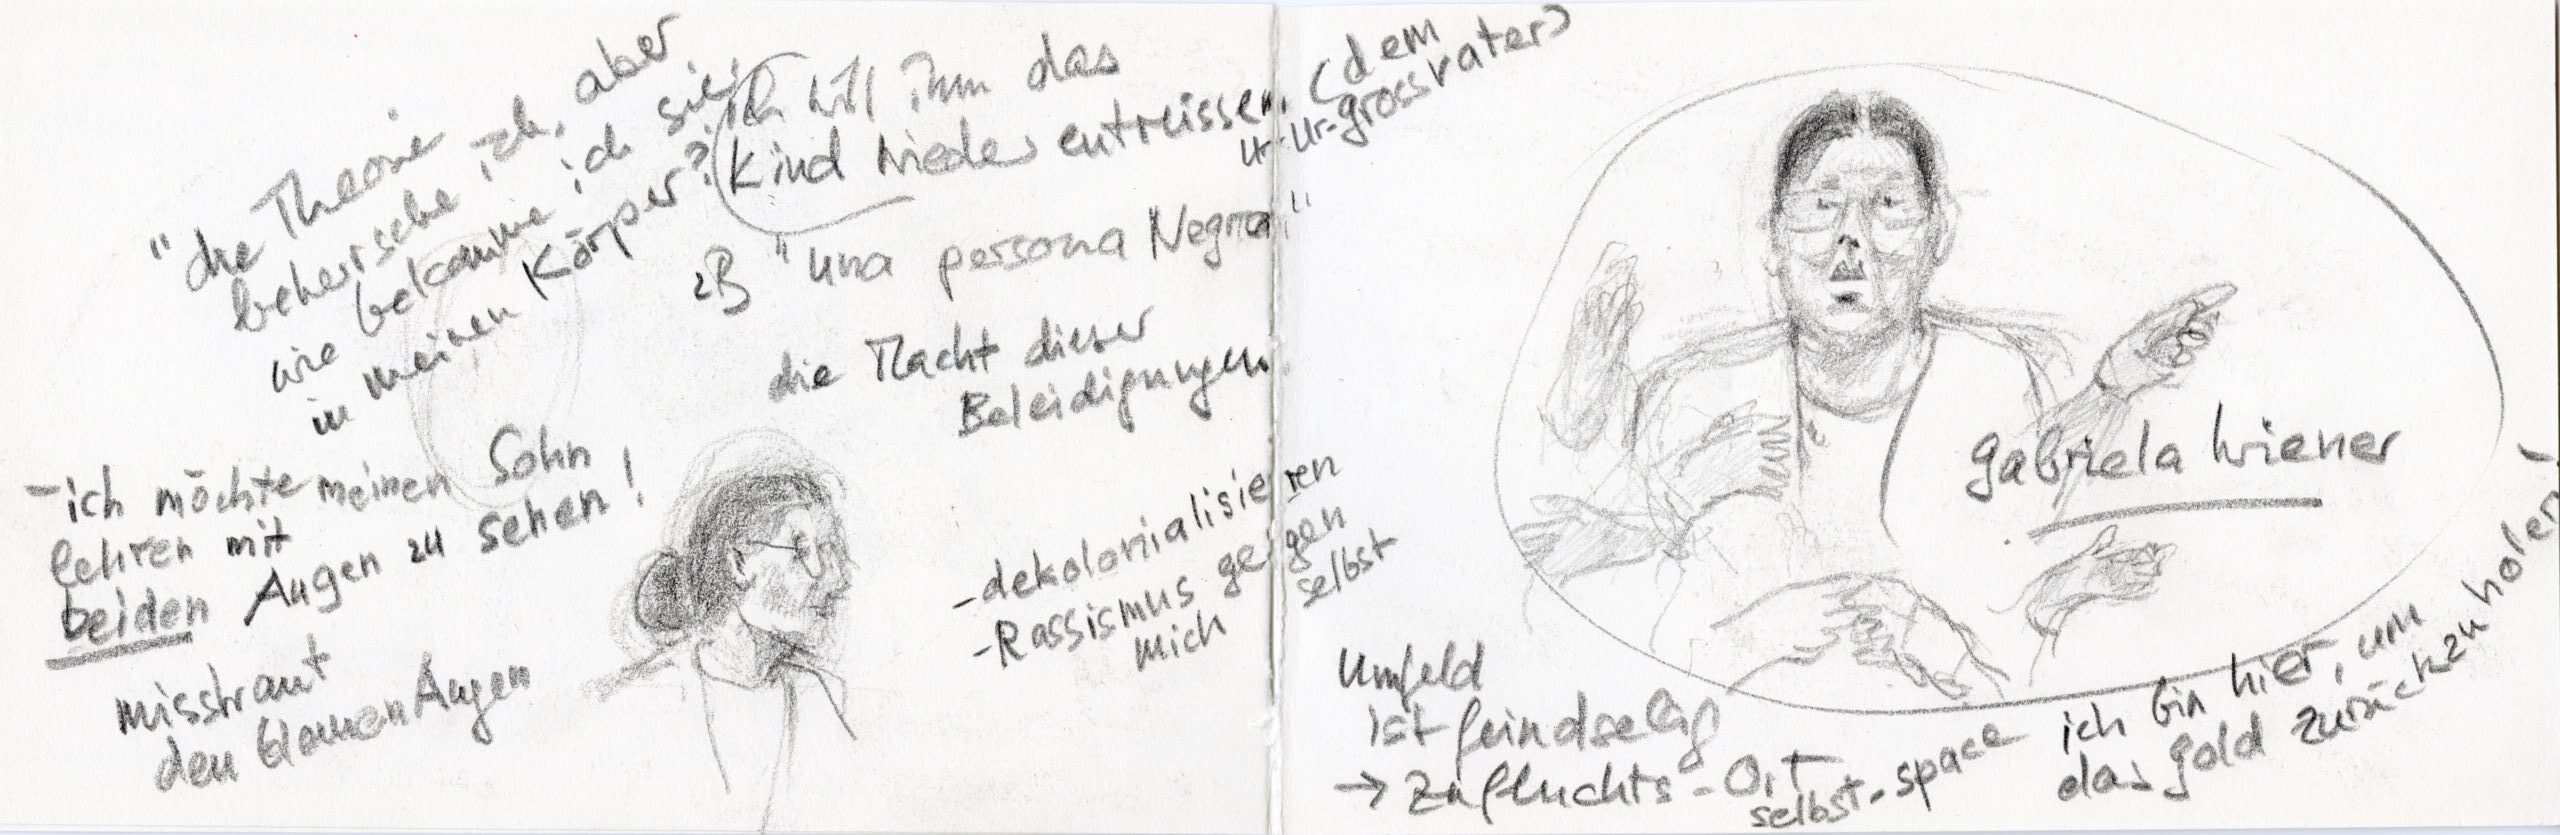 "die Theorie
beherrsche ich, aber
wie bekomme ich sie
in meinen Körper?"
ich will ihm das
Kind wieder entreissen. (dem
Ur-Ur-grossvater)
zB "una persona Negra"
die Macht dieser
Beleidigungen
- ich möchte meinen Sohn
lehren mit
beiden Augen zu sehen!
misstraut
den blauen Augen
- dekolonialisieren
- Rassismus gegen
mich selbst
gabriela wiener
Umfeld
ist feindselig
→ Zufluchts-Ort
selbst-space
ich bin hier, um
das gold zurück zu holen -